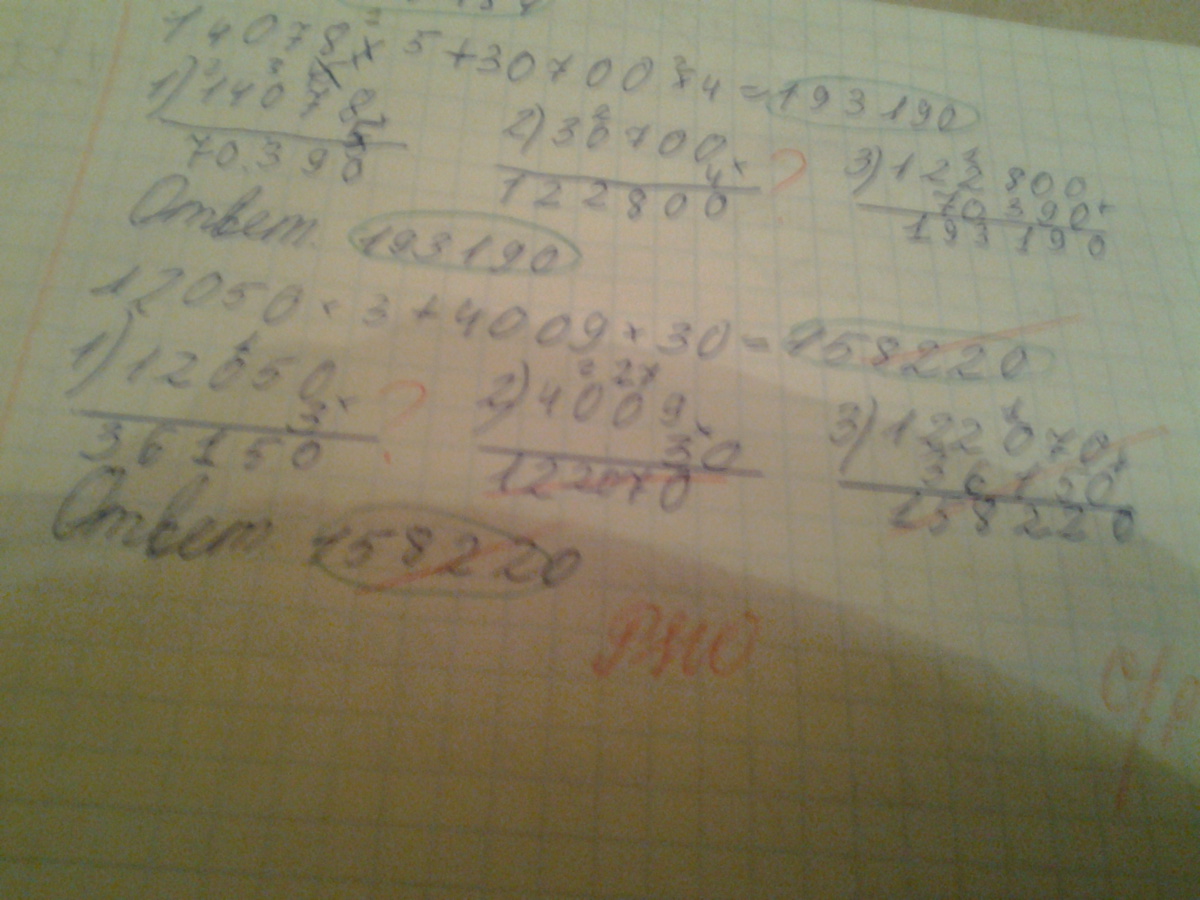 14078 × 5 + 30700 × 4 = 193190
1) 14078 2) 30700 ? 3) 122800
5 4 × 70390 +
70.390 122800 193190
Ответ. 193190
12050 × 3 + 4009 × 30 = 158220
1) 12050 ? 2) 4009 3) 122070
3 × 30 × 36150 +
36150 122070 158220
Ответ 158220
РНО
С/Р